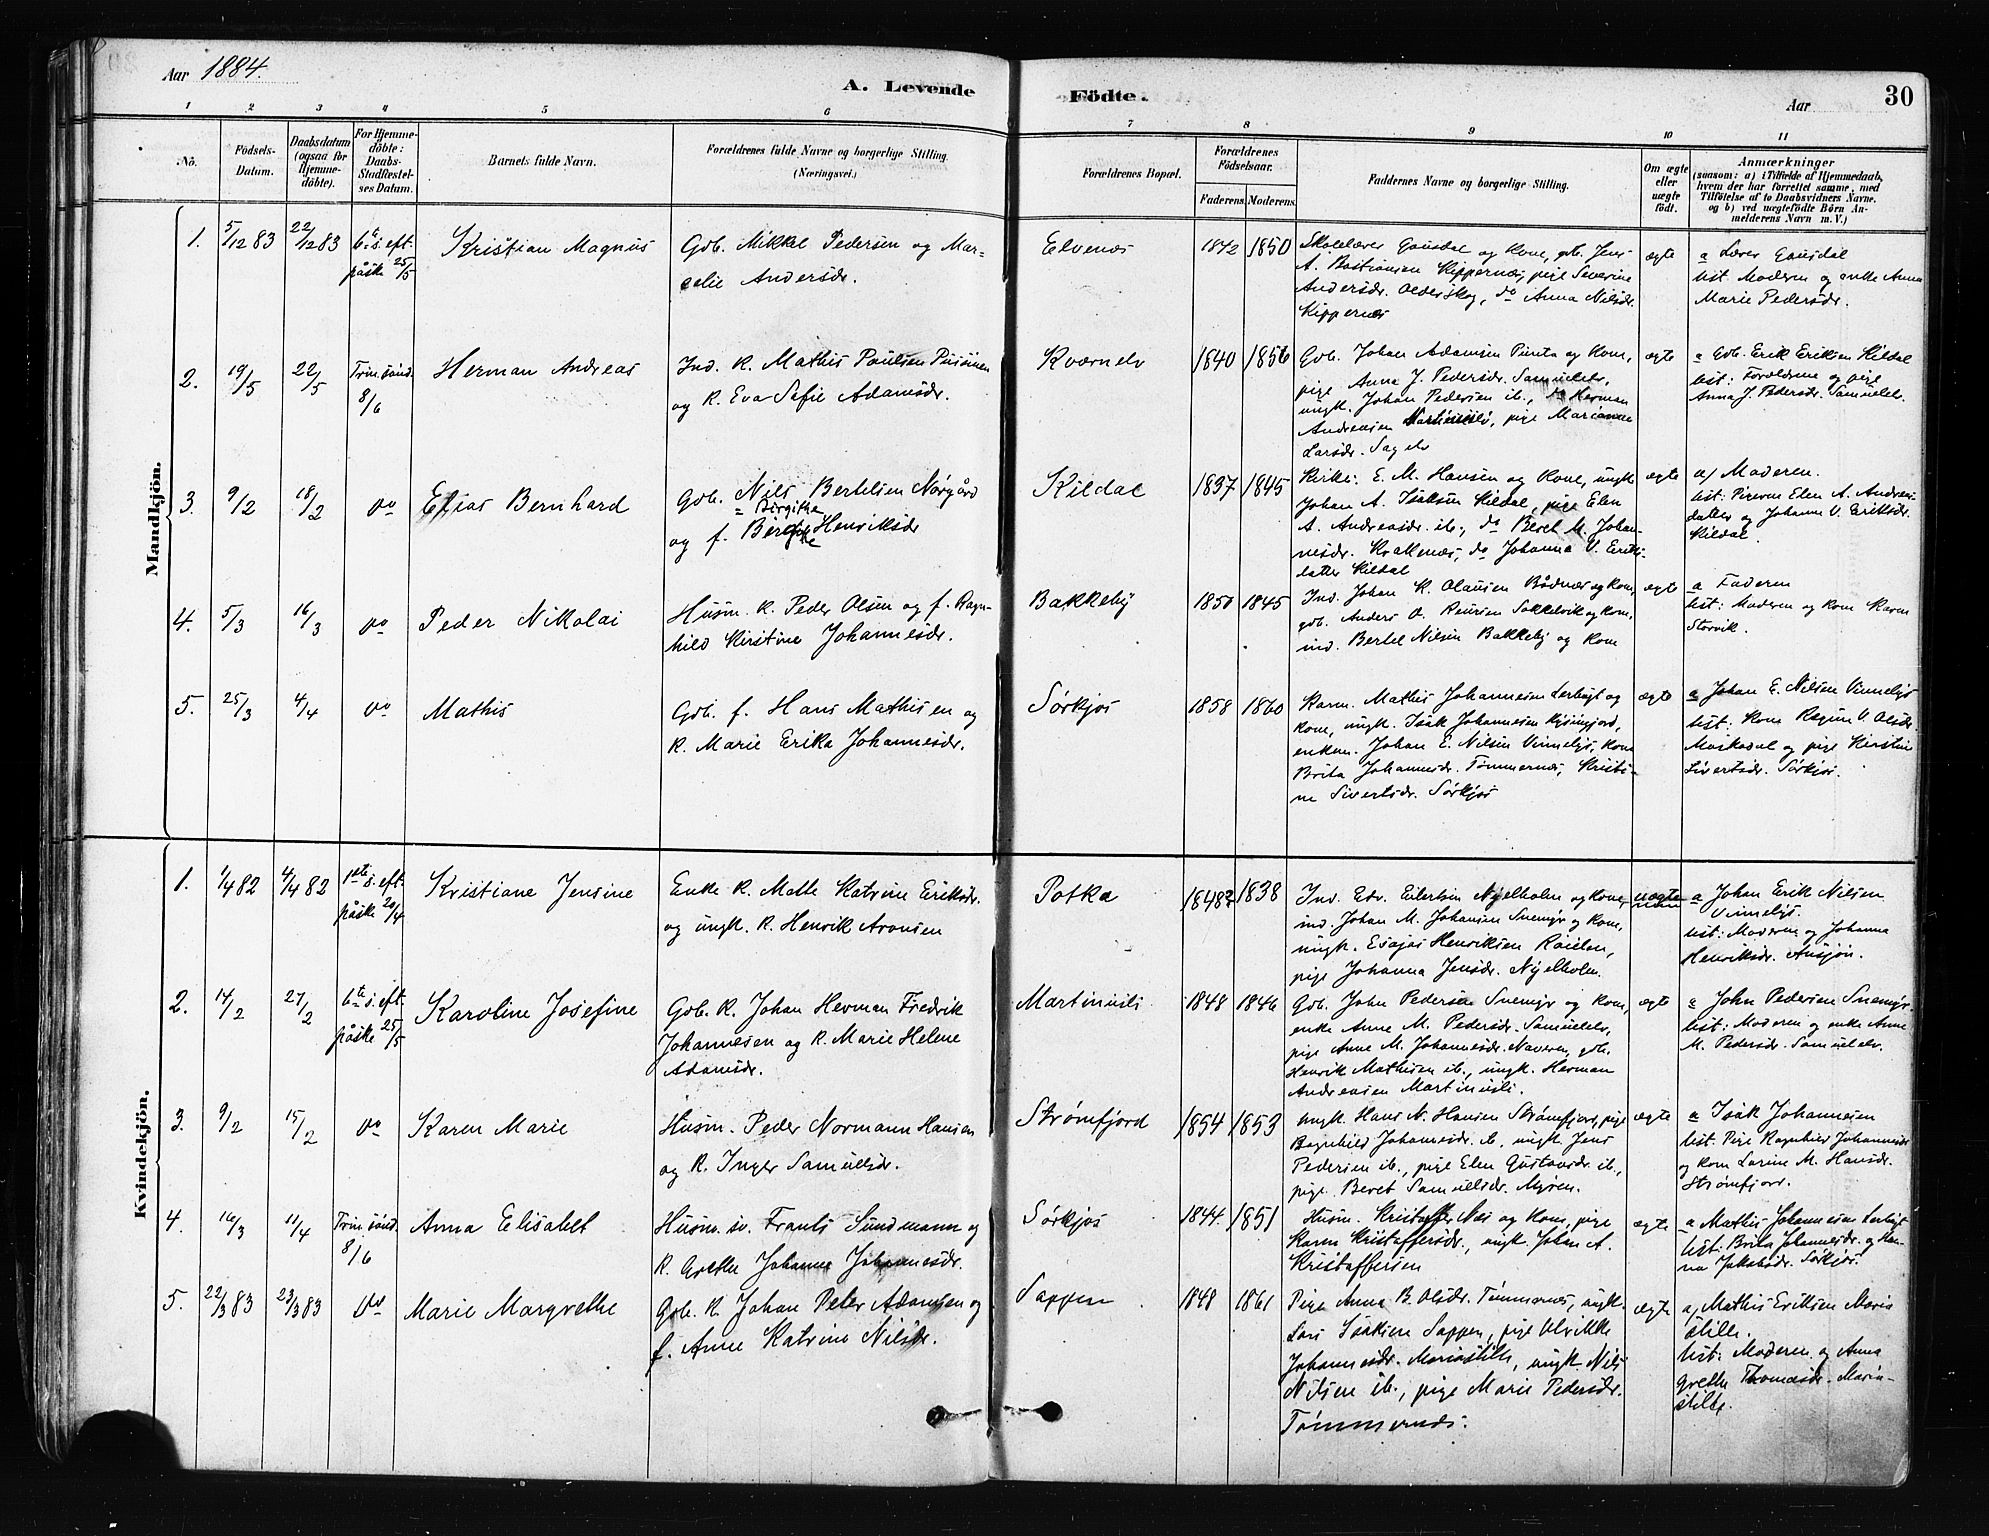 Aar 1884.
A. Levende Födte.
Aar
30
1 2 3 4 5 6 7 8 9 10 11
No.
Födsels-
Datum.
Daabsdatum
(ogsaa for
Hjemme-
döbte).
For Hjemme-
döbte:
Daabs-
Stadfæstel-
ses Datum.
Barnets fulde Navn.
Forældrenes fulde Navne og borgerlige Stilling.
(Næringsvei.)
Forældrenes Bopæl.
Forældrenes
Födselsaar.
Faderens. Moderens.
Faddernes Navne og borgerlige Stilling.
Om ægte
eller
uægte
födt.
Anmærkninger
(saasom: a) i Tilfælde af Hjemmedaab,
hvem der har forrettet samme, med
Tilföielse af to Daabsvidners Navne.
og b) ved uægtefödte Börn An-
melderens Navn m. V.)
Mandkjön.
1. 5/12 83 22/12 83
6te s. eft.
påske 25/5
Kristian Magnus
Gdb. Mikkel Pedersen og Mar-
celie Andersdr.
Elvenæs
1842 1850
Skolelærer Gausdal og Kone, gb. Jens
A. Bastiansen Kippernæs, pige Severine
Andersdr. Olderskog, do Anna Nilsdr.
Kippernæs
ægte
a Lærer Gausdal
test. Moderen og enke Anna
Marie Pedersdr.
2. 19/5 22/5
Trin. sönd.
8/6
Herman Andreas
Ind. K. Mathis Paulsen
og K. Eva Sofie Adamsdr.
Kvænelv
1840 1856
Gdb. Johan Adamsen og Kone,
pige Anna J. Pedersdr. Samuelelv,
ungk. Johan Pedersen ib., do Herman
Andreasen Martinusli, pige Marianne
Larsdr. Sagelv
ægte
a Gdb. Erik Eriksen Kildal
test: Forældrene og pige
Anna J. Pedersdr. Samuelelv.
3. 9/2 18/2 do
Elias Bernhard
Gdb. Nils Bertelsen Nørgård
= Birgitke
og f. Henriksdr
Kildal
1837 1845
Kirkes. E. M. Hansen og Kone, ungk.
Johan A. Isaksen Kildal, pige Elen
A. Andreasdr. ib., do Beret M. Johan-
nesdr. Kvalnæs, do Johanna V. Eriks-
datter Kildal
ægte
a/ Moderen.
test: Pigerne Elen A. Andreas-
datter og Johanne V. Eriksdr.
Kildal.
4. 5/3 16/3 do
Peder Nikolai
Husm. K. Peder Olsen og f. Ragn-
hild Kirstine Johannesdr.
Bakkeby
1850 1845
Ind. Johan K. Olausen Bådnæs og kone,
gdb. Anders O. Sokkelvik og kone,
ind. Bertel Nilsen Bakkeby og kone
ægte
a Faderen
test: Moderen og kone Karen
Storvik.
5. 25/3 4/4 do
Mathis
Gdb. f. Hans Mathisen og
K. Marie Erika Johannesdr.
Sørkjos
1858 1860
Mathis Johannesen Lerbugt og
kone, ungk. Isak Johannesen
enkem. Johan E. Nilsen Vinnelys, kone
Brita Johannesdr. Tømmernæs, Kristi-
ne Sivertsdr. Sørkjos
ægte
a Johan E. Nilsen Vinnelys
test: Kone V. Olsdr.
Moskodal og pige Kirstine
Sivertsdr. Sørkjos.
Kvindekjön.
1. 1/4 82 4/4 82
1ste s. eft.
påske 20/4
Kristiane Jensine
Enke K. Malle Katrine Eriksdr.
og ungk. K. Henrik Aronsen
Potka
1848? 1838
Ind. Edv. Eilertsen Nyelholm og kone,
ind. Johan M. Johansen Snemyr og kone,
ungk. Esajas Henriksen
pige Johanna Jensdr. Nyelholm.
uægte
a Johan Erik Nilsen
Vinnelys.
test: Moderen og Johanna
Henriksdr.
2. 14/2 27/2
6te s. eft.
påske 25/5
Karoline Josefine
Gdb. K. Johan Herman Fredrik
Johannesen og K. Marie Helene
Adamsdr.
Martinusli
1848 1846
Gdb. John Pedersen Snemyr og kone,
enke Anne M. Pedersdr. Samuelelv,
pige Anne M. Johannesdr. Naveren, gdb.
Henrik Mathisen ib., ungk. Herman
Andreasen Martinusli.
ægt
a John Pedersen Snemyr.
test: Moderen og enke Anne
M. Pedersdr. Samuelelv.
3. 9/2 15/2 do
Karen Marie
Husm. Peder Normann Hansen
og K. Inger Samuelsdr.
Strømfjord
1854 1853
ungk. Hans N. Hansen Strømfjord, pige
Ragnhild Johannesdr. ib., ungk. Jens
Pedersen ib., pige Elen Gustavsdr. ib.,
pige Beret Samuelsdr. Myren.
ægte
a Isak Johannesen
test. Pige Ragnhild Johannesdr
og kone Larine M. Hansdr.
Strømfjord.
4. 16/3 11/4
Trin. sönd.
8/6
Anna Elisabet
Husm. sv. Frants Sundmann og
K. Grethe Johanna Johannesdr.
Sørkjos
1844. 1851
Husm. Kristoffer Næs og kone, pige
Karen Kristoffersdr., ungk. Johan A.
Kristoffersen
ægte
a Mathis Johannesen Lerbugt
test: Brita Johannesdr. og Han-
na Jakobsdr. Sørkjos.
5. 22/3 83 23/3 83 do
Marie Margrethe
Gdb. K. Johan Peter Adamsen og
f. Anne Katrine Nilsdr.
Sappen
1848 1861
Pige Anna B. Olsdr. Tømmernæs, ungk.
Lars Isaksen Sappen, pige Ulrikke
Johannesdr. Mariastilli, ungk. Nils
Nilsen ib., pige Marie Pedersdr.
Tømmernæs.
ægte
a/ Mathis Eriksen Maria
stille.
test: Moderen og Anna
Grethe Thomasdr. Maria-
stille.